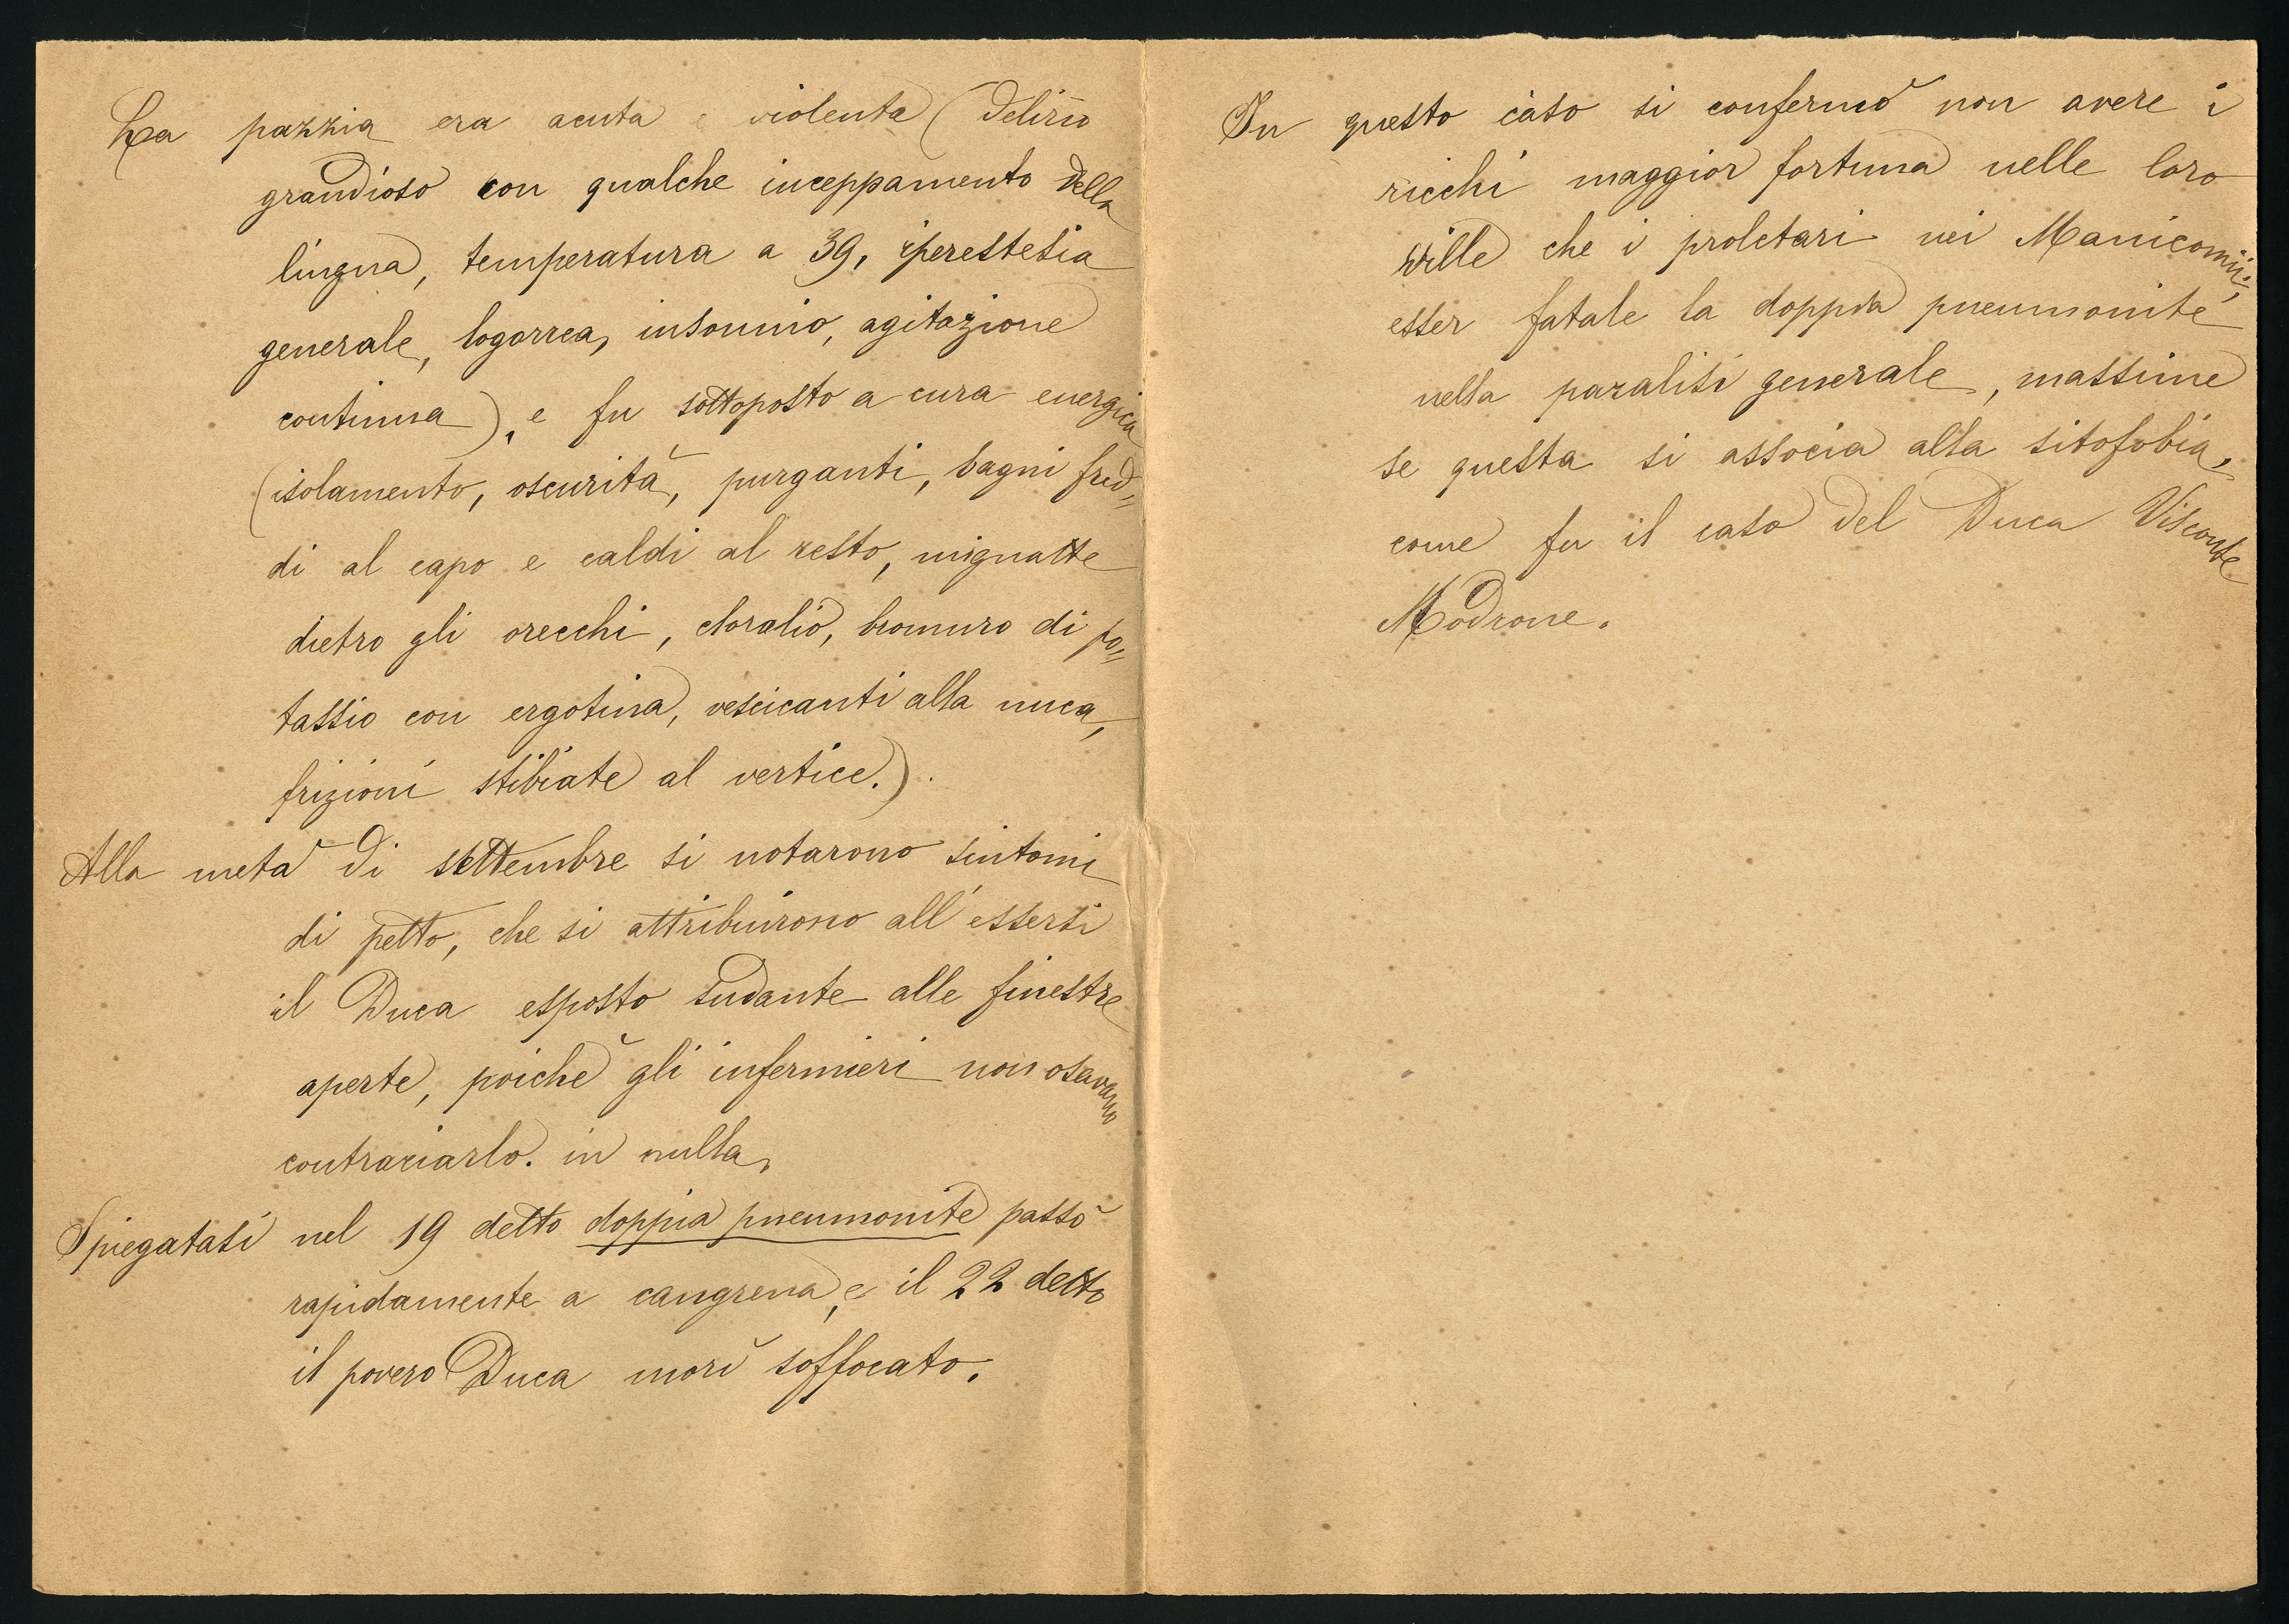 La pazzia era acuta e violenta (delirio
grandioso con qualche inceppamento della
lingua, temperatura a 39, iperestesia
generale, logorrea, insonnio, agitazione
continua), e fu sottoposto a cura energica
(isolamento, oscurità, purganti, bagni fred=
di al capo e caldi al resto, mignatte
dietro gli orecchi, cloralio, bromuro di po=
tassio con ergotina, vescicanti alla nuca,
frizioni stibiate al vertice.).
Alla metà di settembre si notarono sintomi
di petto, che si attribuirono all'essersi
il Duca esposto sudante alle finestre
aperte, poichè gli infermieri non osavano
contraciarlo. in nulla.
Spiegatasi nel 19 detto doppia pneumonite passò
rapidamente a cangrena, e il 22 detto
il povero Duca morì soffocato.
In questo caso si confermò non avere i
ricchi maggior fortuna nelle loro
ville che i proletari nei Manicomii;
esser fatale la doppia pneumonite
nella paralisi generale, massime
se questa si associa alla sitofobia,
come fu il caso del Duca Visconte
Modrone.